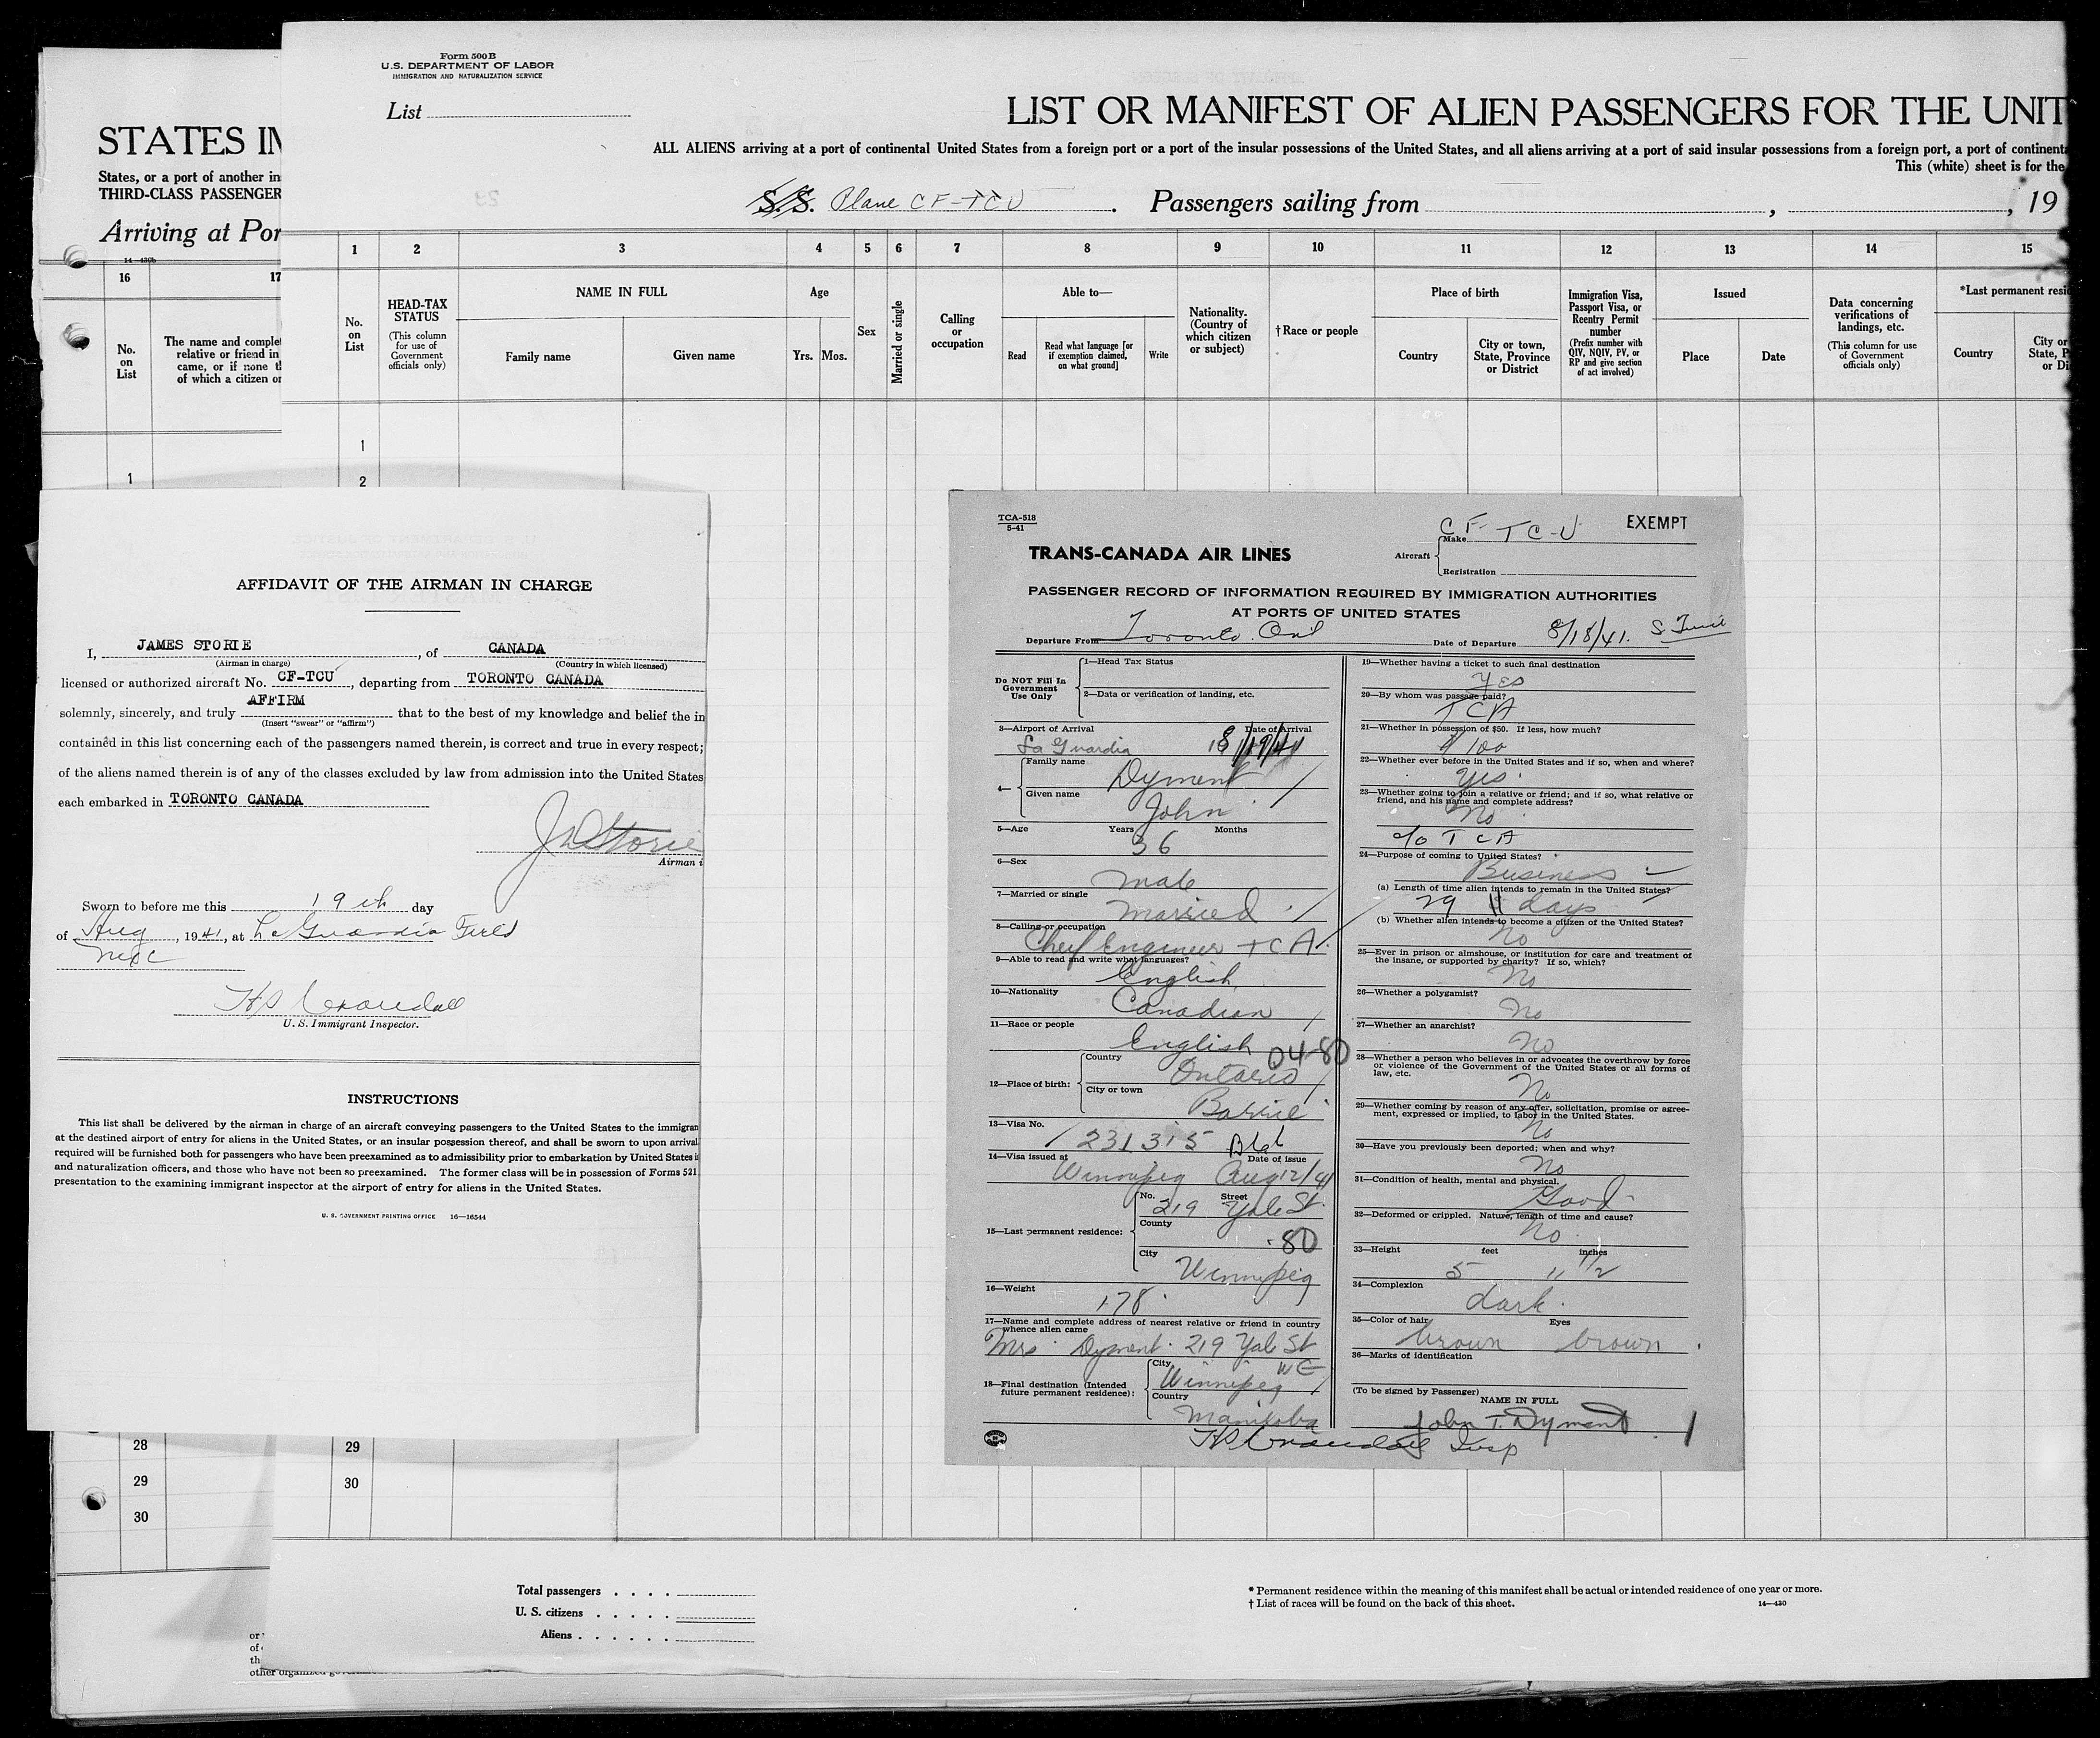 Form 500B
U.S. DEPARTMENT OF LABOR
IMMIGRATION AND NATURALIZATION SERVICE
List
LIST OR MANIFEST OF ALIEN PASSENGERS FOR THE UNIT
ALL ALIENS arriving at a port of continental United States from a foreign port or a port of the insular possessions of the United States, and all aliens arriving at a port of said insular possessions from a foreign port, a port of continent
This (white) sheet is for the
S.S. Plane CF-TCU. Passengers sailing from , , 19
STATES IN
States, or a port of another in
THIRD-CLASS PASSENGER
Arriving at Por
14—430b
16 17
No. on List
The name and comple
relative or friend in
came, or if none t
of which a citizen or
1
1 2 3 4 5 6 7 8 9 10 11 12 13 14 15
No. on List
HEAD-TAX STATUS
(This column for use of Government officials only)
NAME IN FULL
Family name Given name
Age
Yrs. Mos.
Sex
Married or single
Calling or occupation
Able to—
Read
Read what language [or if exemption claimed, on what ground]
Write
Nationality. (Country of which citizen or subject)
†Race or people
Place of birth
Country
City or town, State, Province or District
Immigration Visa, Passport Visa, or Reentry Permit number
(Prefix number with QIV, NQIV, PV, or RP and give section of act involved)
Issued
Place Date
Data concerning verifications of landings, etc.
(This column for use of Government officials only)
*Last permanent resi
Country
City or
State, P
or Di
1
2
AFFIDAVIT OF THE AIRMAN IN CHARGE
I, JAMES STORIE, of CANADA
(Airman in charge) (Country in which licensed)
licensed or authorized aircraft No. CF-TCU, departing from TORONTO CANADA
solemnly, sincerely, and truly AFFIRM that to the best of my knowledge and belief the in
(Insert "swear" or "affirm")
contained in this list concerning each of the passengers named therein, is correct and true in every respect;
of the aliens named therein is of any of the classes excluded by law from admission into the United States
each embarked in TORONTO CANADA
Storie
Airman i
Sworn to before me this 19th day
of Aug, 1941, at La Guardia Field
HS Crandall
U. S. Immigrant Inspector.
INSTRUCTIONS
This list shall be delivered by the airman in charge of an aircraft conveying passengers to the United States to the immigran
at the destined airport of entry for aliens in the United States, or an insular possession thereof, and shall be sworn to upon arrival
required will be furnished both for passengers who have been preexamined as to admissibility prior to embarkation by United States i
and naturalization officers, and those who have not been so preexamined. The former class will be in possession of Forms 521
presentation to the examining immigrant inspector at the airport of entry for aliens in the United States.
U. S. GOVERNMENT PRINTING OFFICE 16—16544
TCA-518
5-41
EXEMPT
TRANS-CANADA AIR LINES
Aircraft
Make CF-TCU
Registration
PASSENGER RECORD OF INFORMATION REQUIRED BY IMMIGRATION AUTHORITIES
AT PORTS OF UNITED STATES
Departure From Toronto. Ont Date of Departure 8/18/41.
Do NOT Fill In Government Use Only
1—Head Tax Status
2—Data or verification of landing, etc.
3—Airport of Arrival Date of Arrival
La Guardia 8/19/41
4—
Family name Dyment
Given name John
5—Age Years Months
36
6—Sex
Male
7—Married or single
Married
8—Calling or occupation
Chief Engineer TCA
9—Able to read and write what languages?
English
10—Nationality
Canadian
11—Race or people
English 04-80
12—Place of birth:
Country Ontario
City or town Barrie
13—Visa No.
231315
14—Visa issued at Date of issue
Winnipeg Aug 12/41
15—Last permanent residence:
No. Street
219 Yale St.
County
80
City
Winnipeg
16—Weight
178
17—Name and complete address of nearest relative or friend in country
whence alien came
Mrs Dyment. 219 Yale St
18—Final destination (Intended future permanent residence):
City
Winnipeg
Country
Manitoba
19—Whether having a ticket to such final destination
Yes
20—By whom was passage paid?
TCA
21—Whether in possession of $50. If less, how much?
$100
22—Whether ever before in the United States and if so, when and where?
Yes.
23—Whether going to join a relative or friend; and if so, what relative or
friend, and his name and complete address?
No
c/o TCA
24—Purpose of coming to United States?
Business
(a) Length of time alien intends to remain in the United States?
29 days
(b) Whether alien intends to become a citizen of the United States?
No
25—Ever in prison or almshouse, or institution for care and treatment of
the insane, or supported by charity? If so, which?
No
26—Whether a polygamist?
No
27—Whether an anarchist?
No
28—Whether a person who believes in or advocates the overthrow by force
or violence of the Government of the United States or all forms of
law, etc.
No
29—Whether coming by reason of any offer, solicitation, promise or agree-
ment, expressed or implied, to labor in the United States.
No
30—Have you previously been deported; when and why?
No
31—Condition of health, mental and physical.
Good
32—Deformed or crippled. Nature, length of time and cause?
No
33—Height feet inches
5 11 1/2
34—Complexion
dark.
35—Color of hair Eyes
brown brown
36—Marks of identification
(To be signed by Passenger)
NAME IN FULL
John T. Dyment
HS Crandall Insp
28
29
30
29
30
Total passengers . . . .
U. S. citizens . . . . .
Aliens . . . . . .
* Permanent residence within the meaning of this manifest shall be actual or intended residence of one year or more.
† List of races will be found on the back of this sheet.
14—430
or
of
th